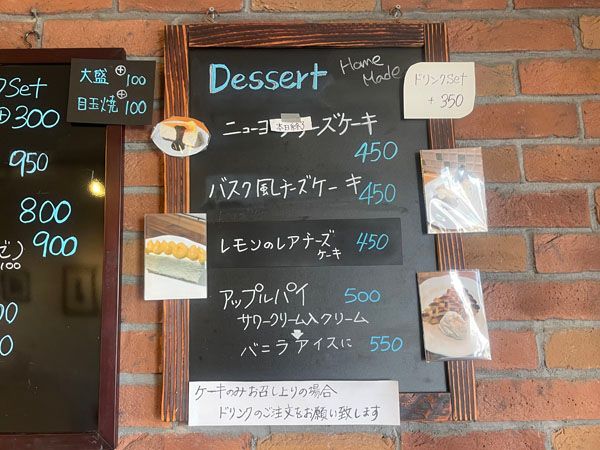 クSet
⊕300
950
800
ご) 900
100
大盛 ⊕100
目玉焼 ⊕100
Dessert
Home Made
ドリンクSet
+350
ニューヨークチーズケーキ
本日終了
450
バスク風チーズケーキ 450
レモンのレアチーズケーキ 450
アップルパイ 500
サワークリーム入クリーム
バニラアイスに 550
ケーキのみお召し上りの場合
ドリンクのご注文をお願い致します